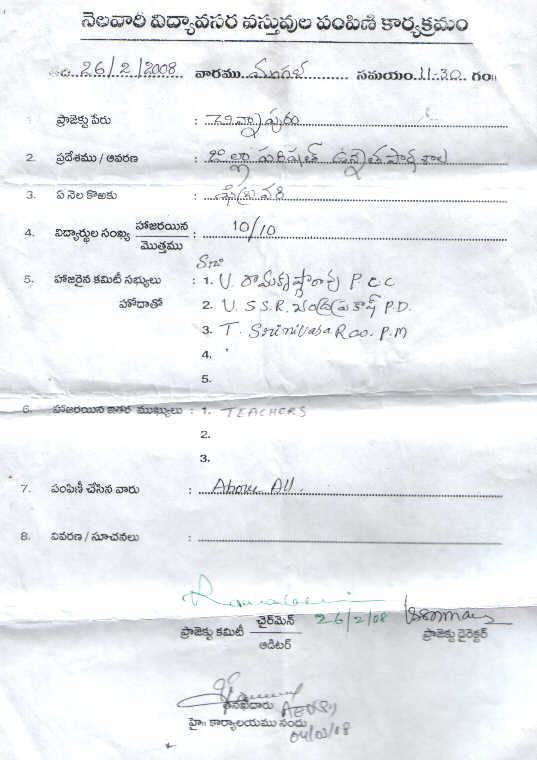 నెలవారీ విద్యావసర వస్తువుల పంపిణీ కార్యక్రమం
తేది. 26/2/2008. వారము మంగళ సమయం.11.30 గం॥
1. ప్రాజెక్టు పేరు : చిన్నాపురం
2. ప్రదేశము / ఆవరణ : జిల్లా పరిషత్ ఉన్నత పాఠశాల
3. ఏ నెల కొఱకు : ఫిబ్రవరి
4. విద్యార్థుల సంఖ్య హాజరయిన / మొత్తము : 10/10
Sri
5. హాజరైన కమిటీ సభ్యులు : 1. V. రామకృష్ణారావు P.C.C
హోదాతో 2. V. S.S.R. చంద్రప్రకాష్ P.D.
3. T. Srinivasa Rao. P.M
4.
5.
6. హాజరయిన ఇతర ముఖ్యులు : 1. TEACHERS
2.
3.
7. పంపిణీ చేసిన వారు : Above All.
8. వివరణ / సూచనలు :
ప్రాజెక్టు కమిటీ ఛైర్‌మెన్ / ఆడిటర్ 26/2/08 ప్రాజెక్టు డైరెక్టర్
తనిఖీదారు
హై॥ కార్యాలయము నందు